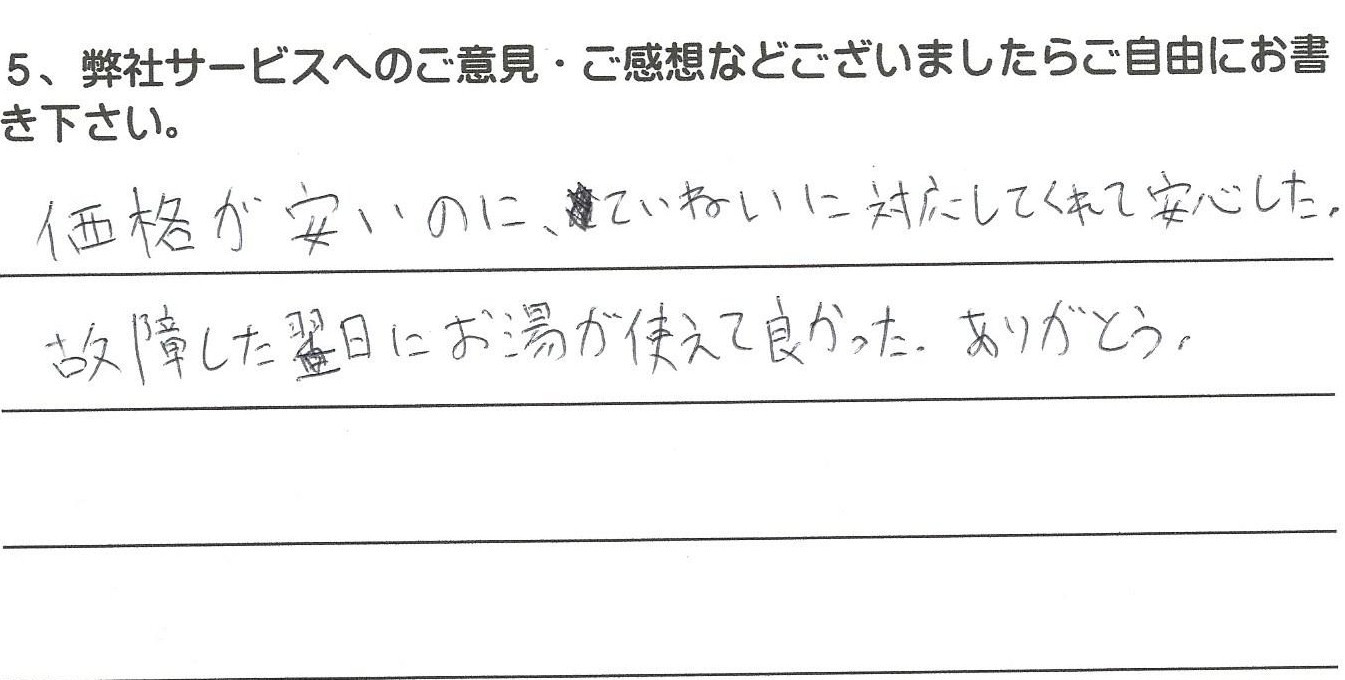 5、弊社サービスへのご意見・ご感想などございましたらご自由にお書
き下さい。
価格が安いのに、ていねいに対応してくれて安心した。
故障した翌日にお湯が使えて良かった。ありがとう。